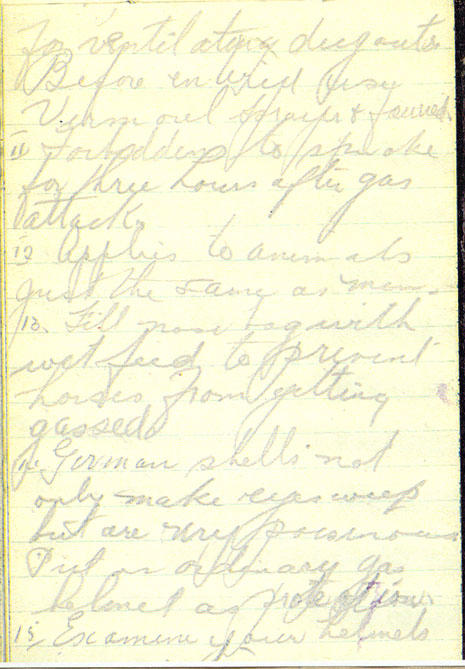 for ventilating dugouts
Before entered use
Vermorel Sprayer &
11 Forbidden to smoke
for three hours after gas
attack.
12 Applies to animals
just the same as men.
13. Fill nose bag with
wet feed to prevent
horses from getting
gassed
14. German shells not
only make eyes weep
but are very poisonous
Put on ordinary gas
helmet as protection
15 Examine your helmets